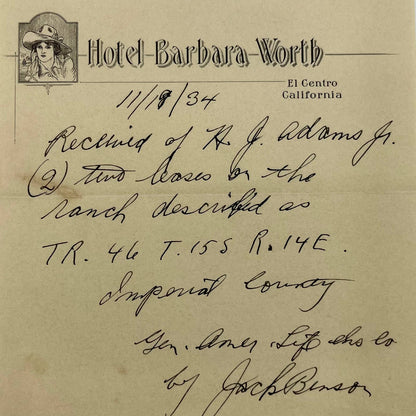 Hotel Barbara Worth
El Centro
California
11/19/34
Received of H. J. Adams Jr.
(2) two leases on the
ranch described as
TR. 46 T. 15S R. 14E.
Imperial County
Gen. Amer. Co
by Jack Benson